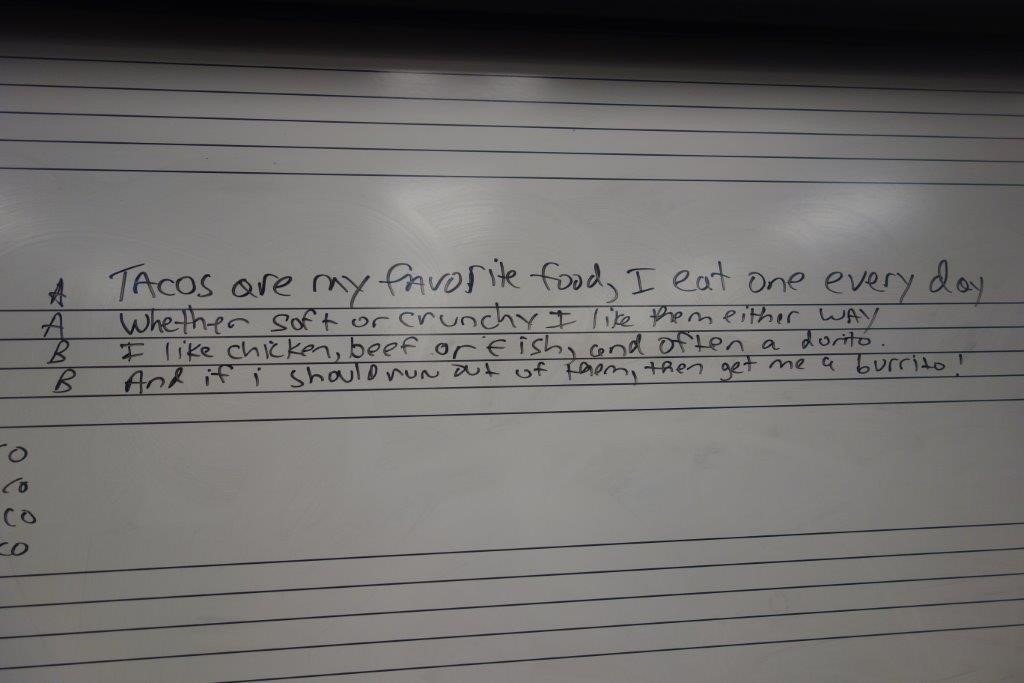 A TACOS are my favorite food, I eat one every day
A Whether soft or crunchy I like them either WAY
B I like chicken, beef or fish, and often a dorito.
B And if i should run out of them, then get me a burrito!
CO
CO
CO
CO